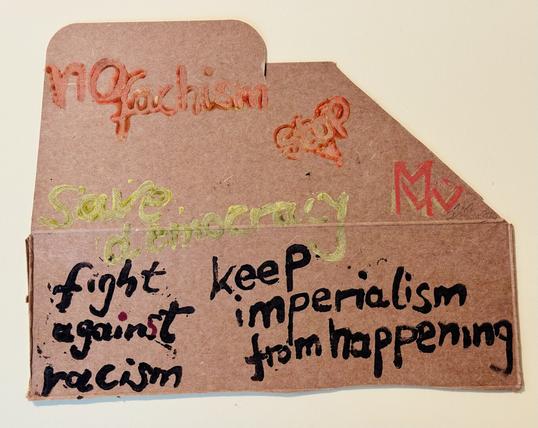 no
fachism
Stop
save
dimocracy
fight
against
racism
keep
imperialism
from happening